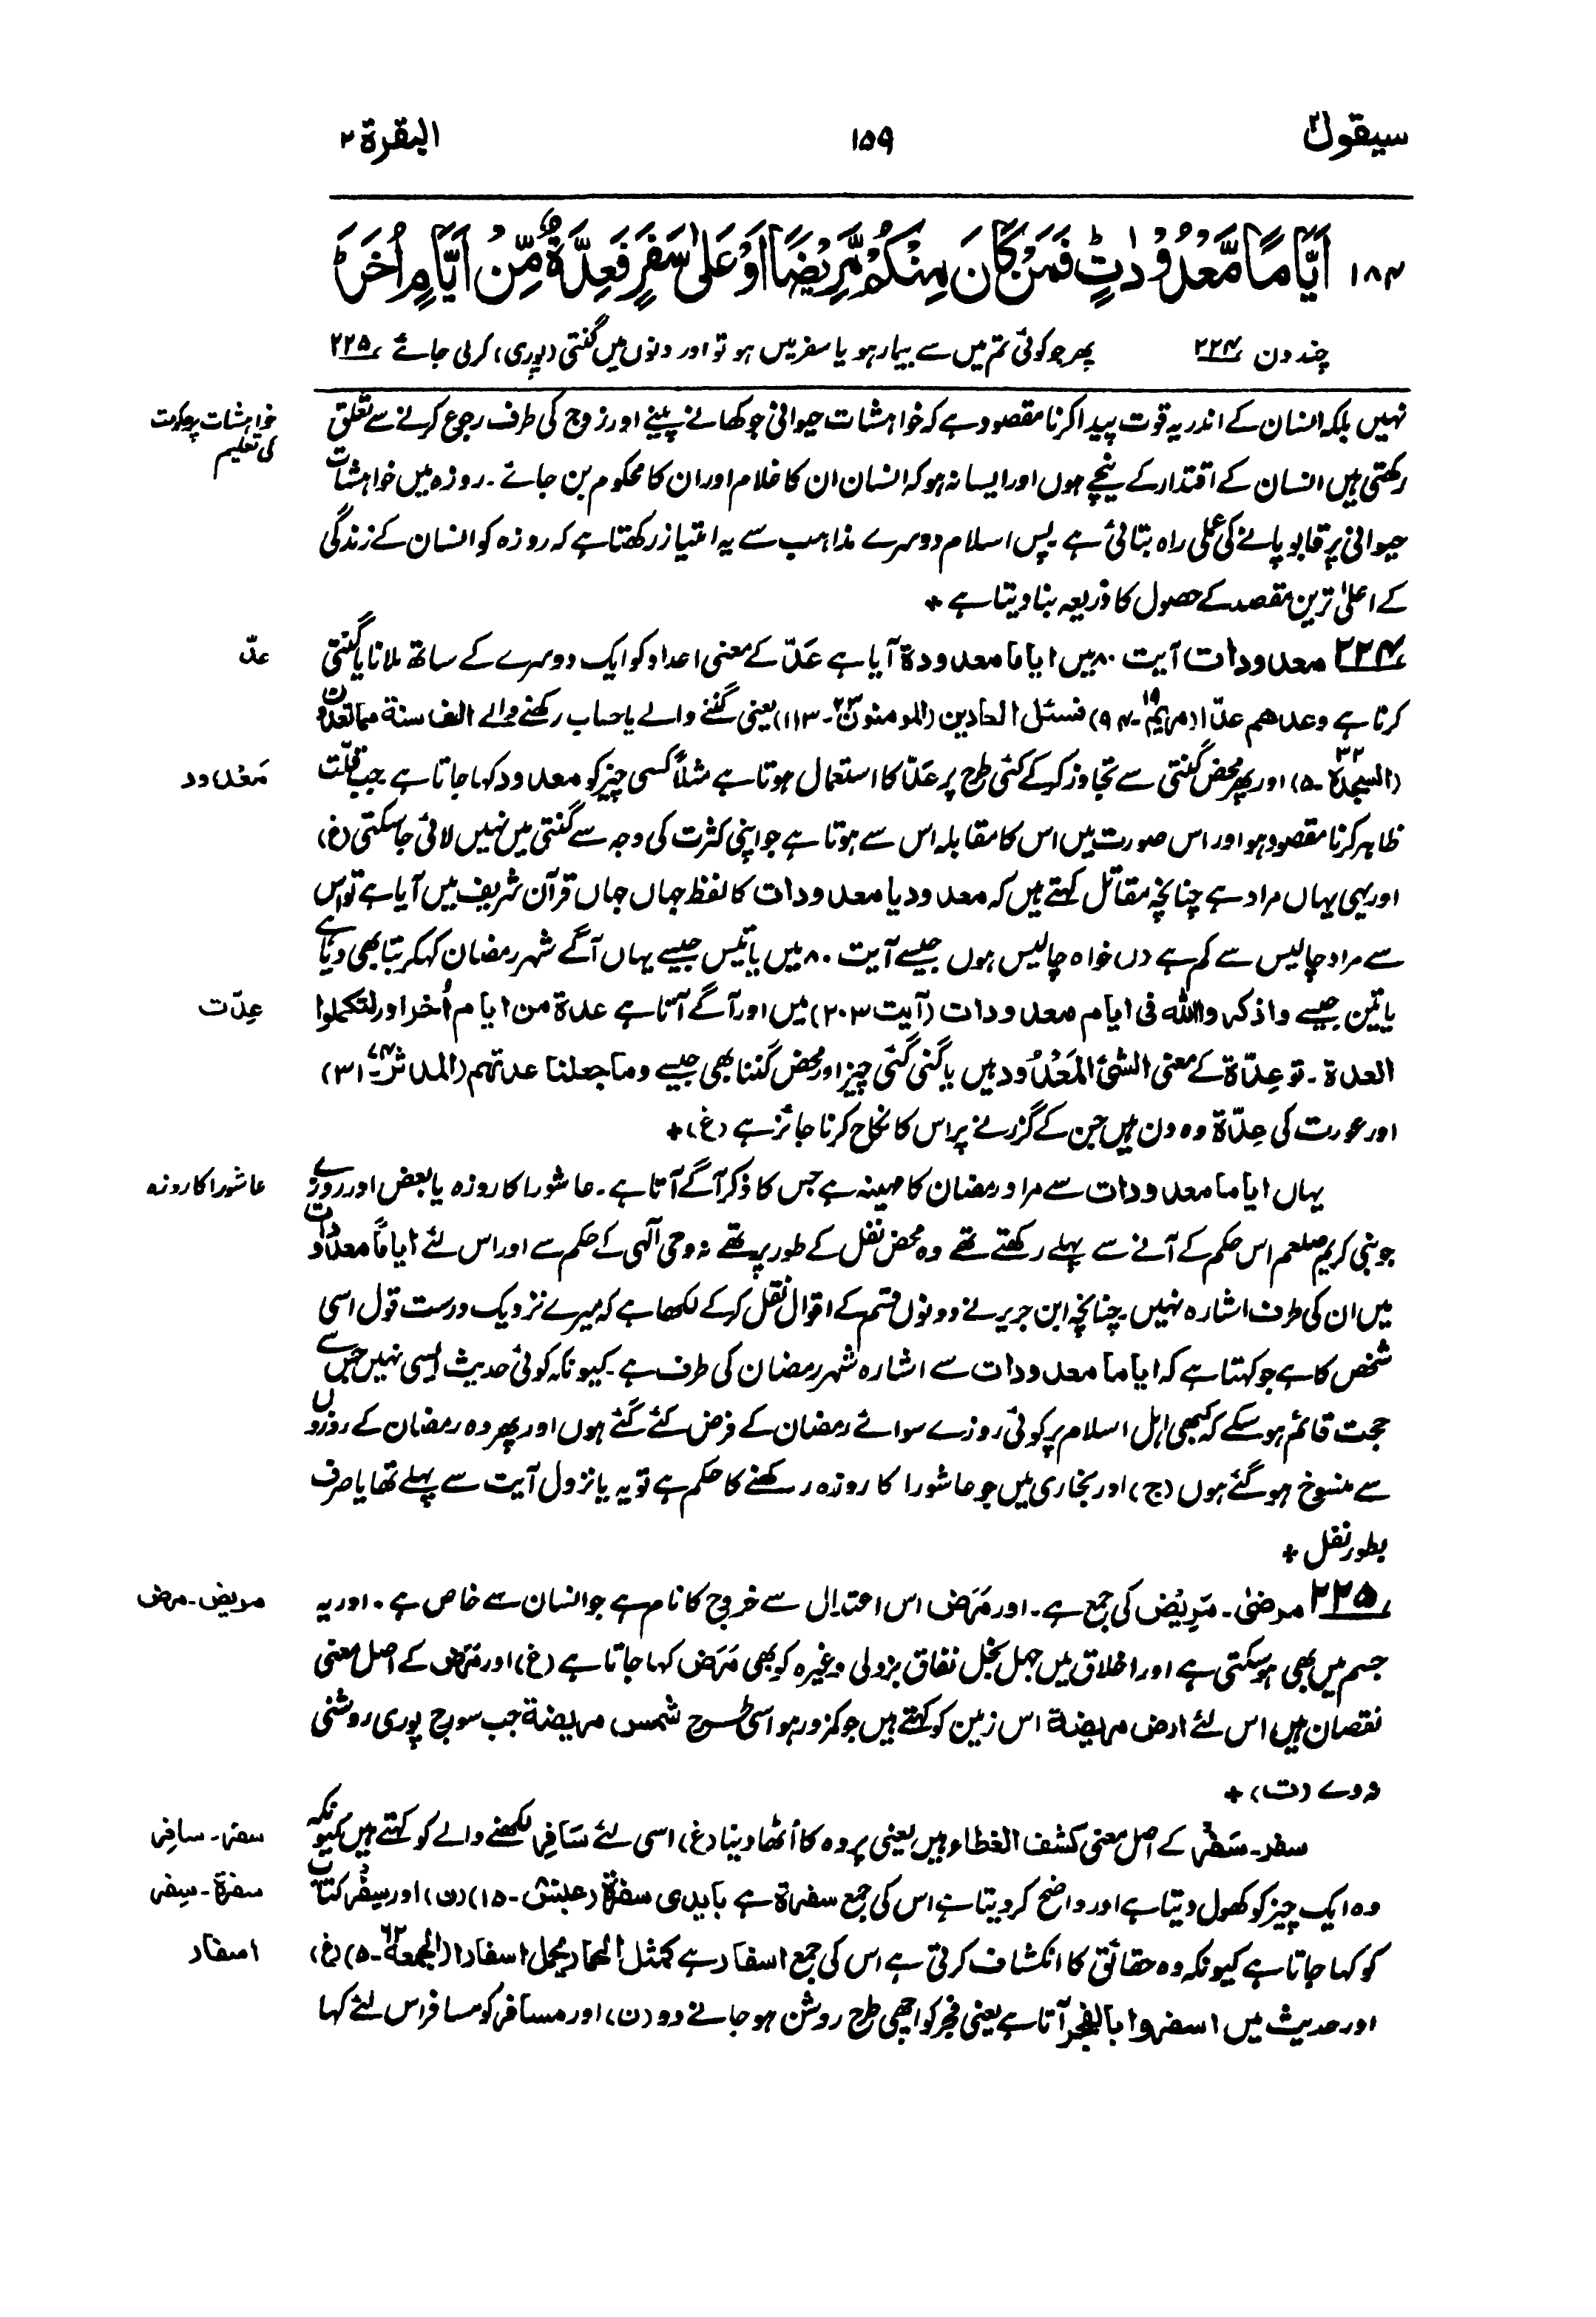 سیقول ۲
۱۵۹
البقرۃ ۲
۱۸۴ اَیَّامًا مَّعْدُوْدٰتٍ ؕ فَمَنْ كَانَ مِنْكُمْ مَّرِیْضًا اَوْ عَلٰى سَفَرٍ فَعِدَّةٌ مِّنْ اَیَّامٍ اُخَرَ ؕ
چند دن ۲۲۴ پھر جو کوئی تم میں سے بیمار ہو یا سفر میں ہو تو اور دنوں میں گنتی (پوری) کرلی جائے ۲۲۵
نہیں بلکہ انسان کے اندر یہ قوت پیدا کرنا مقصود ہے کہ خواہشات حیوانی جو کھانے پینے اور زوج کی طرف رجوع کرنے سے تعلق
خواہشات پر حکومت کی تعلیم
رکھتی ہیں انسان کے اقتدار کے نیچے ہوں اور ایسا نہ ہو کہ انسان ان کا غلام اور ان کا محکوم بن جائے ۔ روزہ میں خواہشات
حیوانی پر قابو پانے کی عملی راہ بتائی ہے پس اسلام دوسرے مذاہب سے یہ امتیاز رکھتا ہے کہ روزہ کو انسان کے زندگی
کے اعلیٰ ترین مقصد کے حصول کا ذریعہ بنا دیتا ہے +
۲۲۴ معدودات آیت ۸۰ میں ایاما معدودۃ آیا ہے عَدّ کے معنی اعداد کو ایک دوسرے کے ساتھ ملانا یا گنتی
عدّ
کرنا ہے وعدھم عدّا (مریم ۱۹-۹۴) فسئل العادین (المومنون ۲۳-۱۱۳) یعنی گننے والے یا حساب رکھنے والے الف سنة مما تعدون
(السجدۃ ۳۲-۵) اور پھر محض گنتی سے تجاوز کرکے کئی طرح پر عَدّ کا استعمال ہوتا ہے مثلاً کسی چیز کو معدود کہا جاتا ہے جب قلّت
مَعْدود
ظاہر کرنا مقصود ہو اور اس صورت میں اس کا مقابلہ اس سے ہوتا ہے جو اپنی کثرت کی وجہ سے گنتی میں نہیں لائی جاسکتی (غ)
اور یہی یہاں مراد ہے چنانچہ مقاتل کہتے ہیں کہ معدود یا معدودات کا لفظ جہاں جہاں قرآن شریف میں آیا ہے تو اس
سے مراد چالیس سے کم ہے دں خواہ چالیس ہوں جیسے آیت ۸۰ میں یا تیس جیسے یہاں آگے شہر رمضان کہکر بتا بھی دیا ہے
یا تین جیسے واذکروا اللہ فی ایام معدودات (آیت ۲۰۳) میں اور آگے آتا ہے عدۃ من ایام اُخر اور لتکملوا
عِدّت
العدۃ ۔ تو عِدّۃ کے معنی الشئ المَعْدُود ہیں یا گنی گئی چیز اور محض گننا بھی جیسے وما جعلنا عدتہم (المدثر ۷۴-۳۱)
اور عورت کی عِدّۃ وہ دن ہیں جن کے گزرنے پر اس کا نکاح کرنا جائز ہے (غ) +
یہاں ایاما معدودات سے مراد رمضان کا مہینہ ہے جس کا ذکر آگے آتا ہے ۔ عاشورا کا روزہ یا بعض اور روزے
عاشورا کا روزہ
جو نبی کریم صلعم اس حکم کے آنے سے پہلے رکھتے تھے وہ محض نفل کے طور پر تھے نہ وحی الٰہی کے حکم سے اور اس لئے ایاماً معدودات
میں ان کی طرف اشارہ نہیں ۔ چنانچہ ابن جریر نے دونوں قسم کے اقوال نقل کرکے لکھا ہے کہ میرے نزدیک درست قول اسی
شخص کا ہے جو کہتا ہے کہ ایاما معدودات سے اشارہ شہر رمضان کی طرف ہے ۔ کیونکہ کوئی حدیث ایسی نہیں جس سے
حجت قائم ہوسکے کہ کبھی اہل اسلام پر کوئی روزے سوائے رمضان کے فرض کئے گئے ہوں اور پھر وہ رمضان کے روزوں
سے منسوخ ہوگئے ہوں (ج) اور بخاری میں جو عاشورا کا روزہ رکھنے کا حکم ہے تو یہ یا نزول آیت سے پہلے تھا یا صرف
بطور نفل +
۲۲۵ مرضیٰ ۔ مَرِیْض کی جمع ہے ۔ اور مَرَض اس اعتدال سے خروج کا نام ہے جو انسان سے خاص ہے ۔ اور یہ
مریض ۔ مرض
جسم میں بھی ہوسکتی ہے اور اخلاق میں جہل بخل نفاق بزدلی وغیرہ کو بھی مَرَض کہا جاتا ہے (غ) اور مَرَض کے اصل معنی
نقصان ہیں اس لئے ارض مریضة اس زمین کو کہتے ہیں جو کمزور ہو اسی طرح شمس مریضة جب سورج پوری روشنی
نہ دے (ت) +
سفر ۔ سَفْر کے اصل معنی کشف الغطاء ہیں یعنی پردہ کا اُٹھا دینا (غ) اسی لئے سَافِر لکھنے والے کو کہتے ہیں کیونکہ
سفر ۔ سافِر
وہ ایک چیز کو کھول دیتا ہے اور واضح کردیتا ہے اس کی جمع سفرۃ ہے بایدی سفرۃ (عبس ۸۰-۱۵) (ن) اور سِفْر کتاب
سفرۃ ۔ سِفر
کو کہا جاتا ہے کیونکہ وہ حقائق کا انکشاف کرتی ہے اس کی جمع اسفار ہے کمثل الحمار یحمل اسفارا (الجمعة ۶۲-۵) (غ)
اسفار
اور حدیث میں اسفروا بالفجر آتا ہے یعنی فجر کو اچھی طرح روشن ہوجانے دو (ن) اور مسافر کو مسافر اس لئے کہا